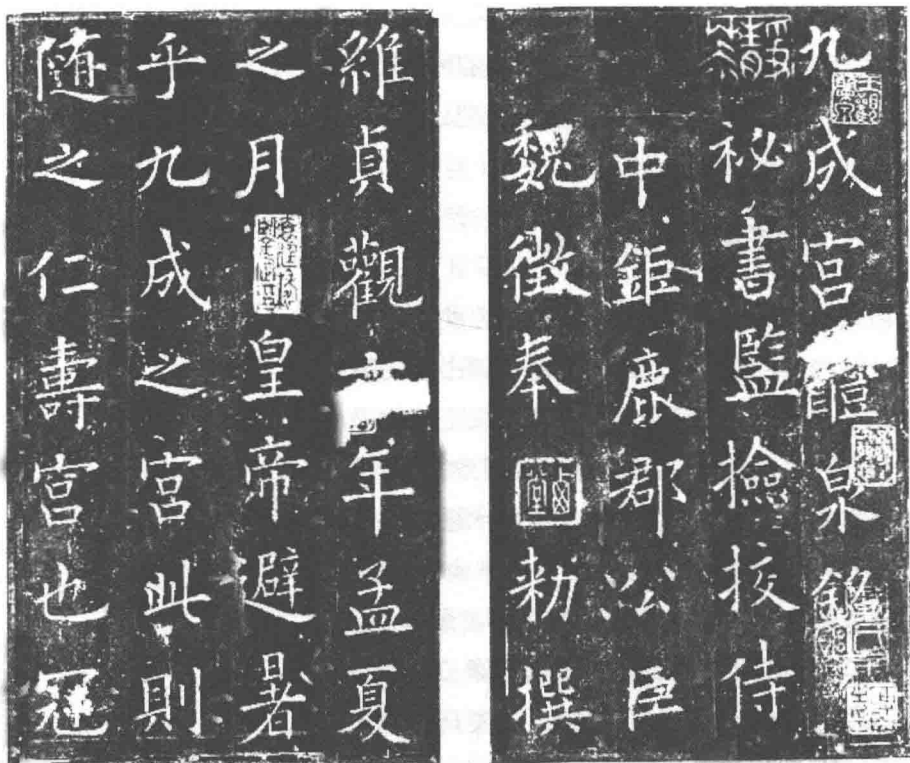 九成宮醴泉銘
祕書監撿挍侍
中鉅鹿郡公臣
魏徵奉勑撰
維貞觀六年孟夏
之月皇帝避暑
乎九成之宮此則
隨之仁壽宮也冠